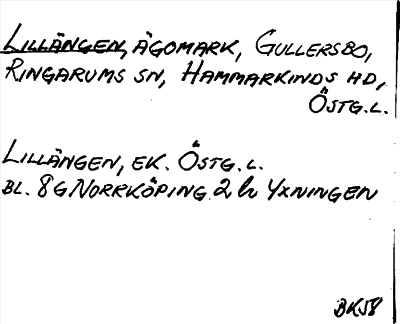 LILLÄNGEN, ÄGOMARK, GULLERSBO,
RINGARUMS SN, HAMMARKINDS HD,
ÖSTG.L.
LILLÄNGEN, EK. ÖSTG.L.
BL. 8G NORRKÖPING 2h YXNINGEN
BK58